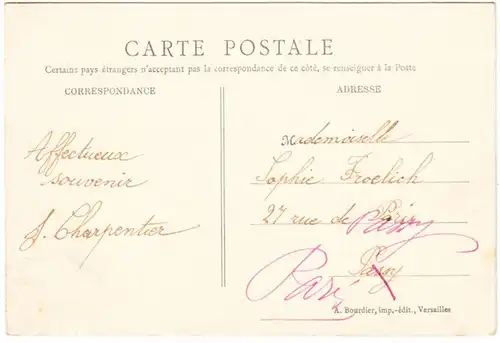 CARTE POSTALE
Certains pays étrangers n'acceptant pas la correspondance de ce côté, se renseigner à la Poste
CORRESPONDANCE
Affectueux
souvenir
S. Charpentier
ADRESSE
Mademoiselle
Sophie Froelich
27 rue de Paris
Passy
Passy
Paris
A. Bourdier, imp.-édit., Versailles